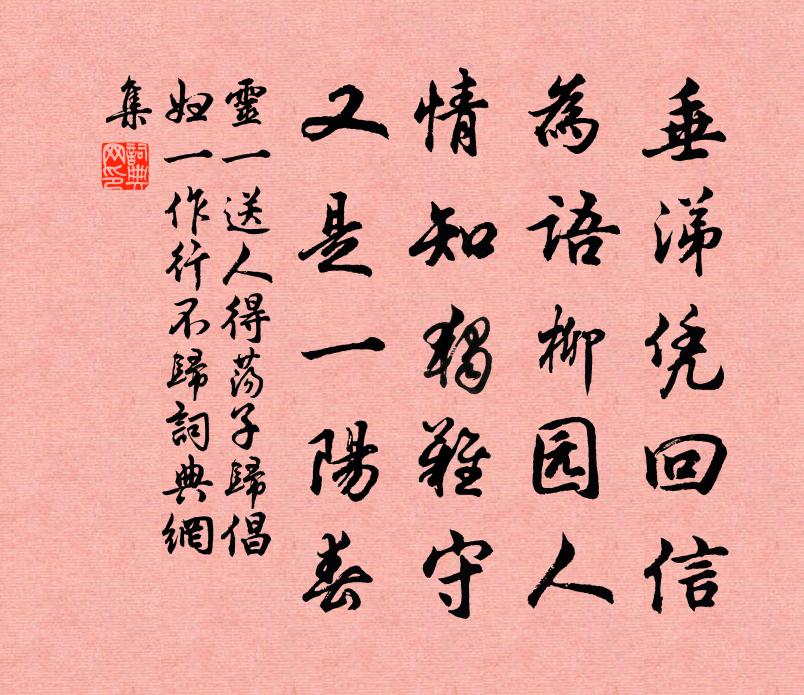 垂涕凭回信
為語柳园人
情知獨難守
又是一陽春
靈一送人得荡子歸倡
婦一作行不歸詞典網
集
詞典
网印